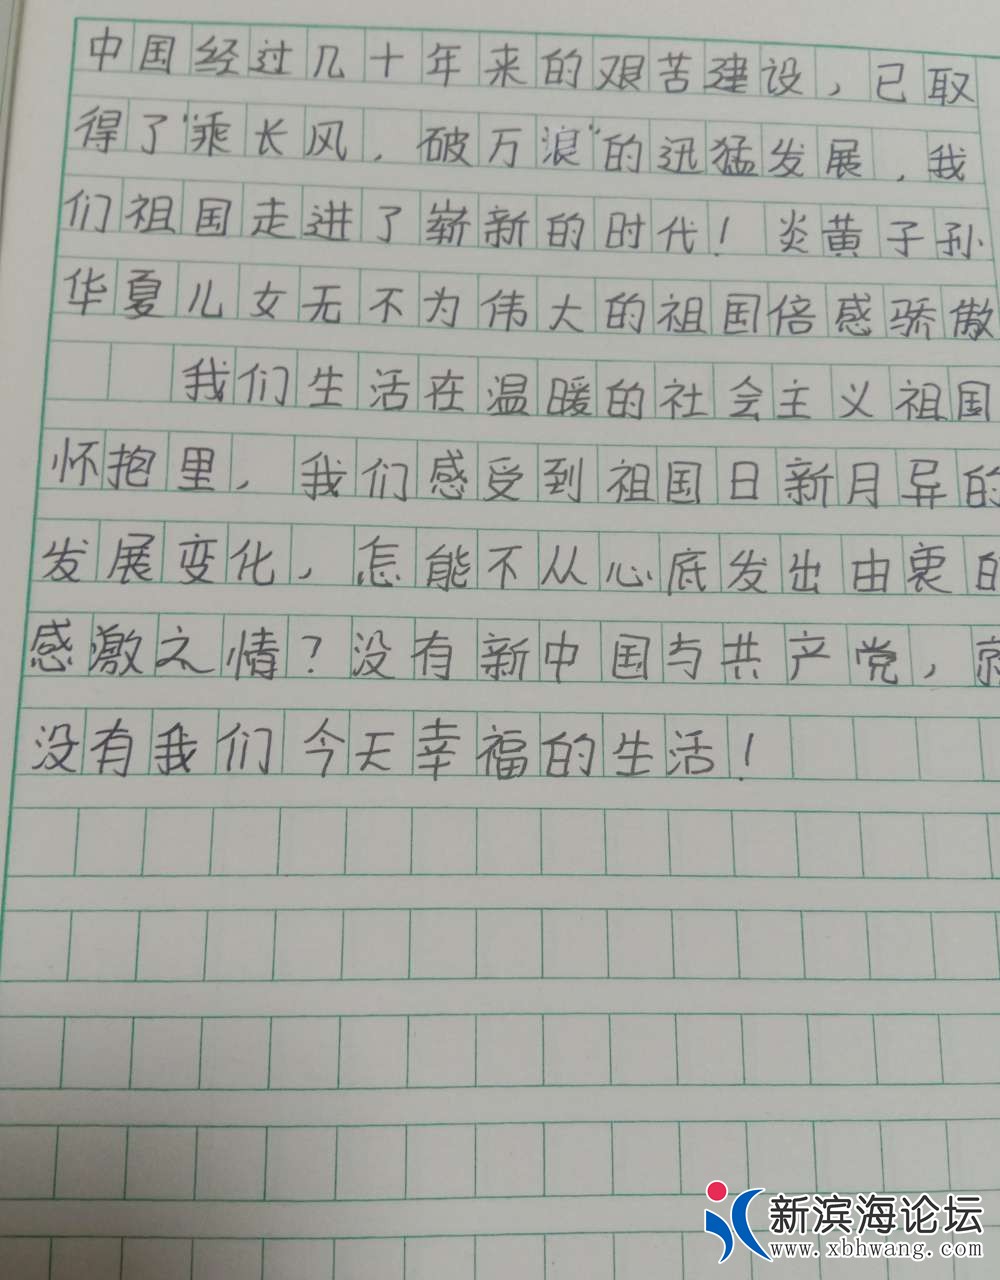 中国经过几十年来的艰苦建设，已取
得了"乘长风，破万浪"的迅猛发展，我
们祖国走进了崭新的时代！炎黄子孙
华夏儿女无不为伟大的祖国倍感骄傲
我们生活在温暖的社会主义祖国
怀抱里，我们感受到祖国日新月异的
发展变化，怎能不从心底发出由衷的
感激之情？没有新中国与共产党，就
没有我们今天幸福的生活！
新滨海论坛
www.xbhwang.com